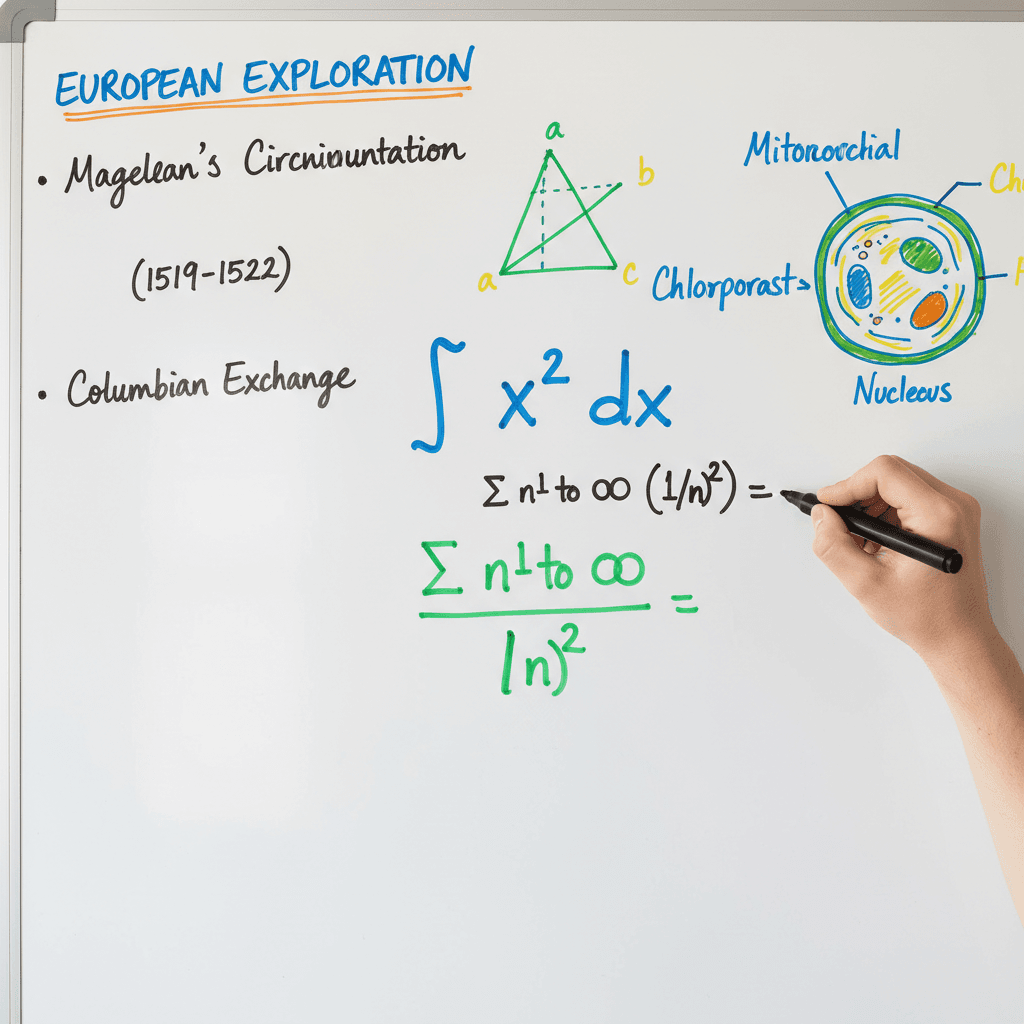 EUROPEAN EXPLORATION
• Magelean's Circniountation
(1519-1522)
• Columbian Exchange
a
b
a
c
Mitonorchial
Ch
Chlorporast
Nucleous
∫ x² dx
Σ n1 to ∞ (1/n)² =
Σ n1 to ∞ =
/n)²